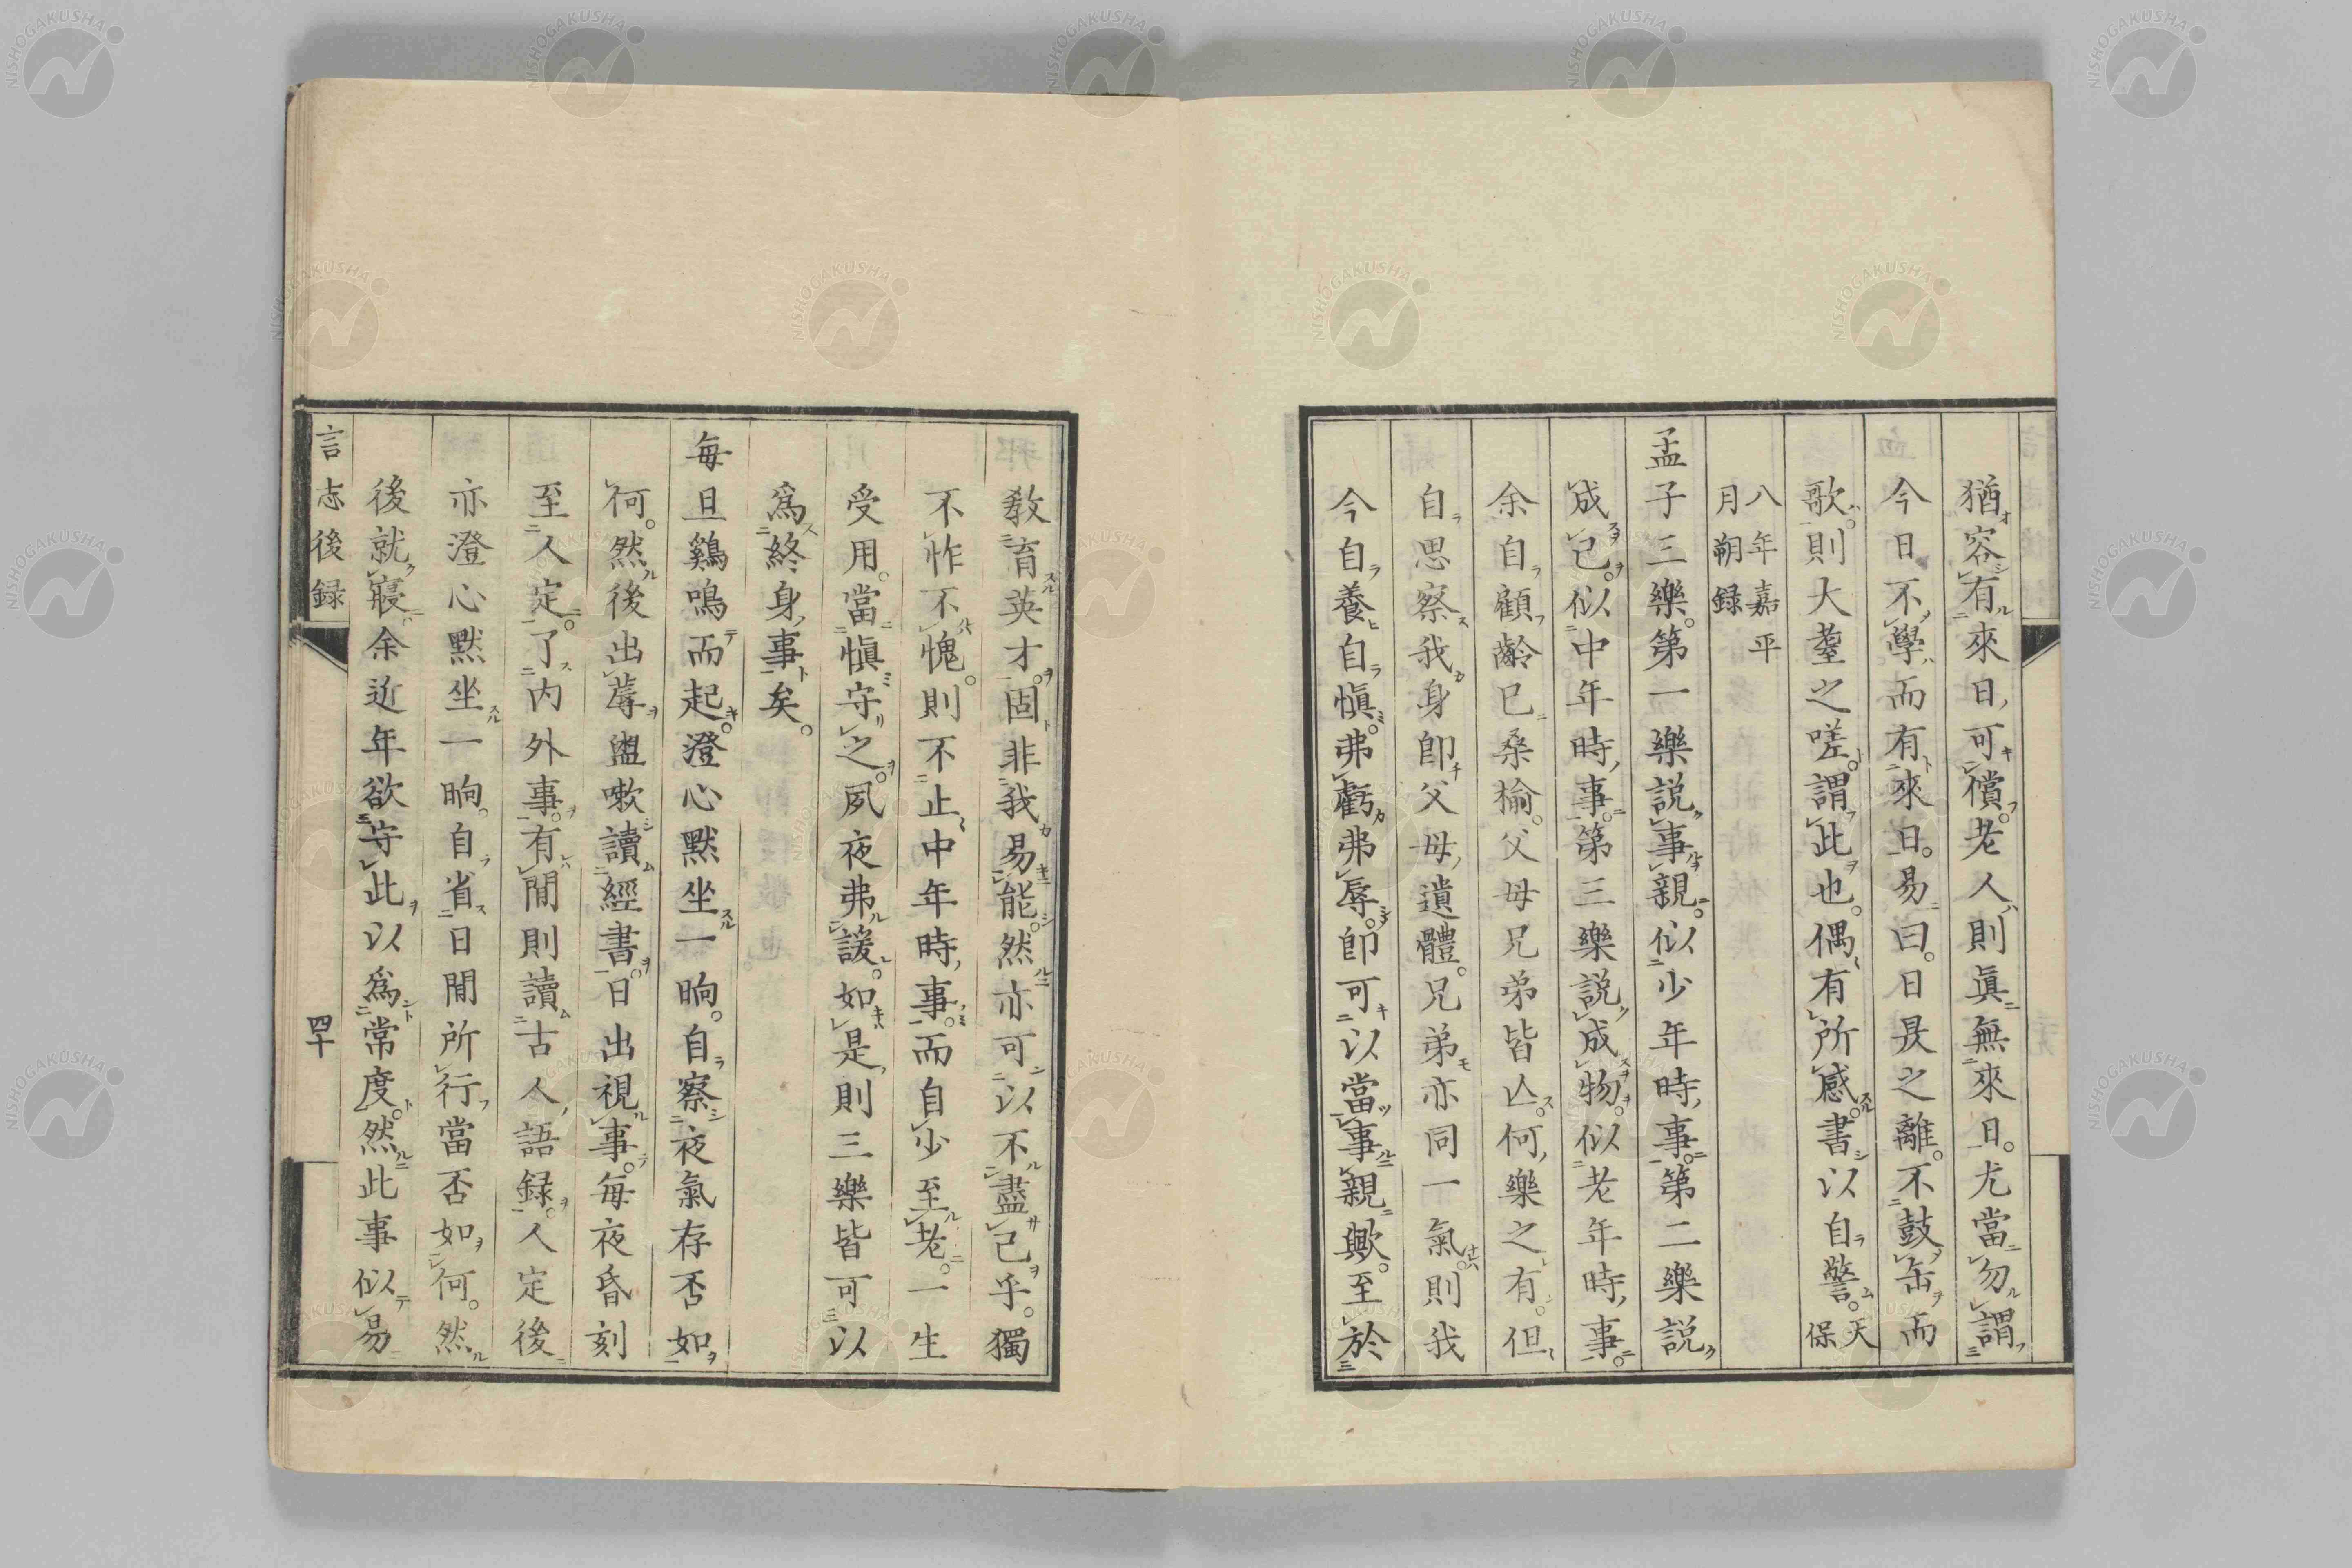 猶容有來日可償老人則眞無來日尤當勿謂
今日不學而有來日易曰日昃之離不鼓缶而
歌則大耋之嗟謂此也偶有所感書以自警天保
八年嘉平
月朔録
孟子三樂第一樂説事親似少年時事第二樂説
成己似中年時事第三樂説成物似老年時事
余自顧齡已桑楡父母兄弟皆亾何樂之有但
自思察我身卽父母遺體兄弟亦同一氣則我
今自養自愼弗虧弗辱卽可以當事親歟至於
教育英才固非我易能然亦可以不盡己乎獨
不怍不愧則不止中年時事而自少至老一生
受用當愼守之夙夜弗諼如是則三樂皆可以
爲終身事矣
每旦鷄鳴而起澄心默坐一晌自察夜氣存否如
何然後出蓐盥嗽讀經書日出視事每夜昏刻
至人定了内外事有閒則讀古人語録人定後
亦澄心默坐一晌自省日閒所行當否如何然
後就寢余近年欲守此以爲常度然此事似易
言志後録
四十
NISHOGAKUSHA